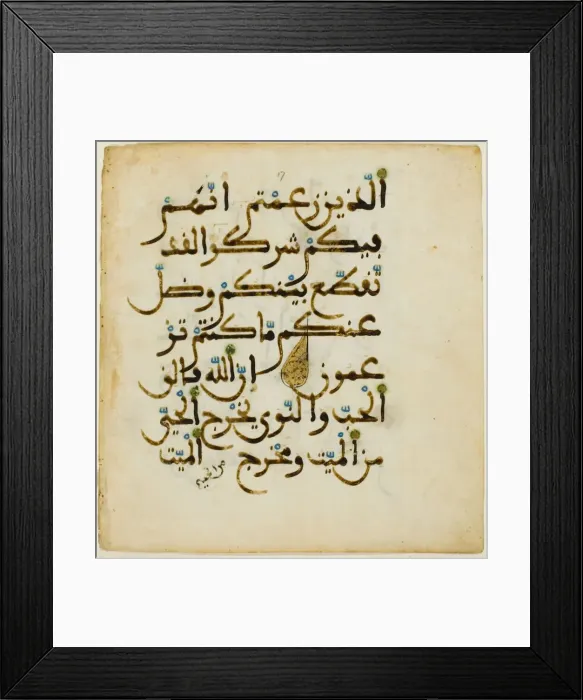 الَّذِينَ زَعَمْتُمْ أَنَّهُمْ
فِيكُمْ شُرَكَٰؤُا لَقَد
تَّقَطَّعَ بَيْنَكُمْ وَضَلَّ
عَنكُم مَّا كُنتُمْ تَزْ
عُمُونَ إِنَّ اللَّهَ فَالِقُ
الْحَبِّ وَالنَّوَىٰ يُخْرِجُ الْحَيَّ
مِنَ الْمَيِّتِ وَمُخْرِجُ الْمَيِّتِ
من الحي